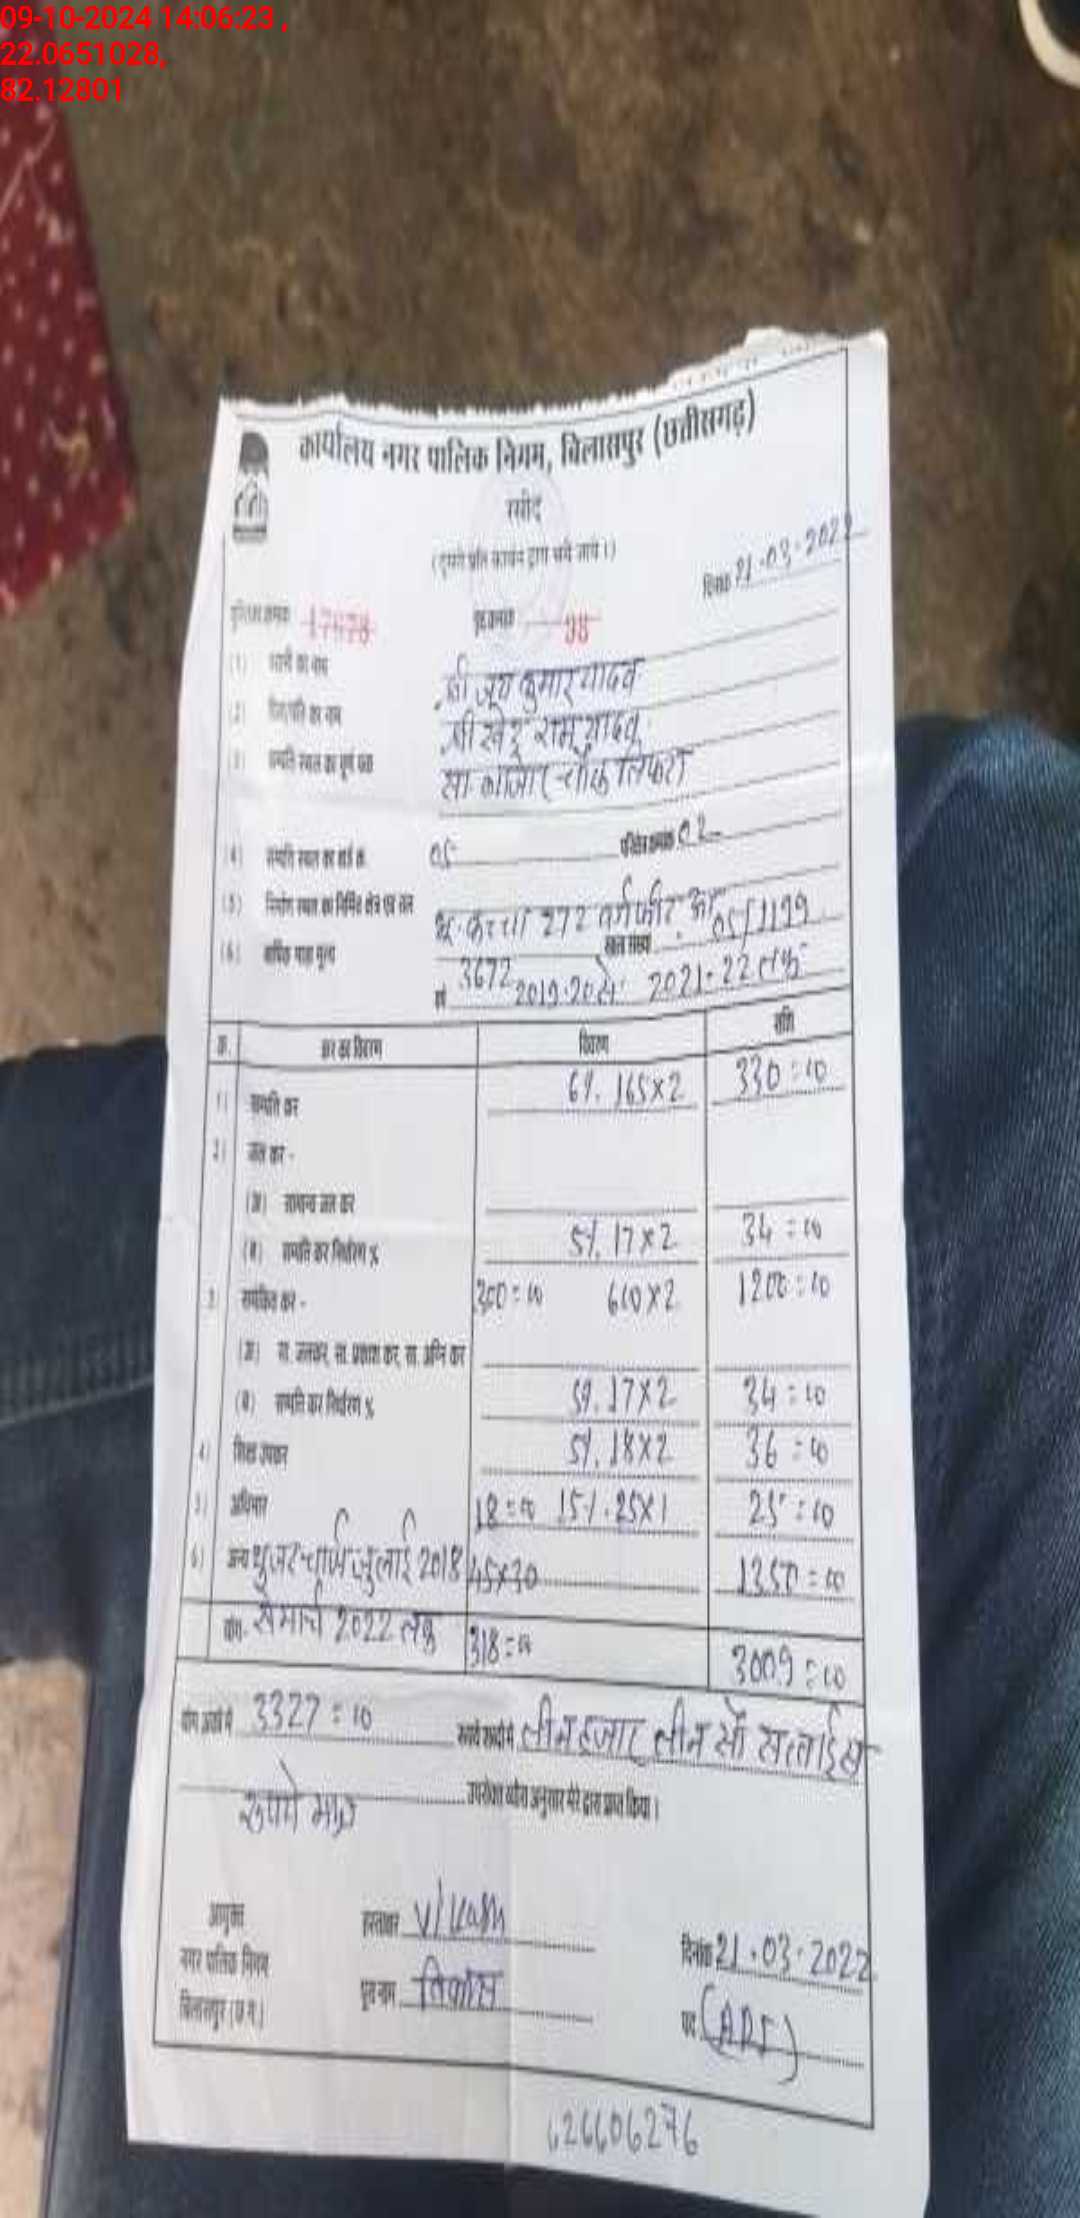 09-10-2024 14:06:23 ,
22.0651028,
82.12801
कार्यालय नगर पालिक निगम, बिलासपुर (छत्तीसगढ़)
रसीद
दिनांक 21.03.2022
पुस्तिका क्रमांक 17678 पृष्ठ क्रमांक 98
(1)
श्री जय कुमार यादव
(2) पिता/पति का नाम श्री खेदू राम यादव
(3) सम्पत्ति स्थल का पूर्ण पता सा. बाजार चौक तिफरा
(4) सम्पत्ति स्थल का वार्ड क्र. 05 परिक्षेत्र क्रमांक 02
(5) निर्माण स्थल का निर्मित क्षेत्र एवं तल भू. कच्चा 272 वर्गफीट
(6) वार्षिक भाड़ा मूल्य 3672 खाता संख्या 05/1199
वर्ष 2019-20 से 2021-22 तक
क्र. कर का विवरण विवरण राशि
1) सम्पत्ति कर 6%. 165×2 330=00
2) जल कर -
(अ) सामान्य जल कर
(ब) सम्पत्ति कर निर्धारण % 5%. 17×2 34=00
3 समेकित कर - 300=00 600×2 1200=00
(अ) सा. जलकर, सा. प्रकाश कर, सा. अग्नि कर
(ब) सम्पत्ति कर निर्धारण % 5%. 17×2 34=00
4) शिक्षा उपकर 5%. 18×2 36=00
5) अधिभार 18=00 15%. 25×1 25=00
6) अन्य यूजर चार्ज जुलाई 2018 45×30 1350=00
से मार्च 2022 तक
योग- 318=00 3009=00
योग अंकों में 3327=00 रूपये शब्दों में तीन हजार तीन सौ सत्ताईस
रूपये मात्र उपरोक्त ब्योरा अनुसार मेरे द्वारा प्राप्त किया।
आयुक्त हस्ताक्षर Vikash दिनांक 21.03.2022
नगर पालिक निगम पूरा नाम विकास
बिलासपुर (छ.ग.) पद
626606276